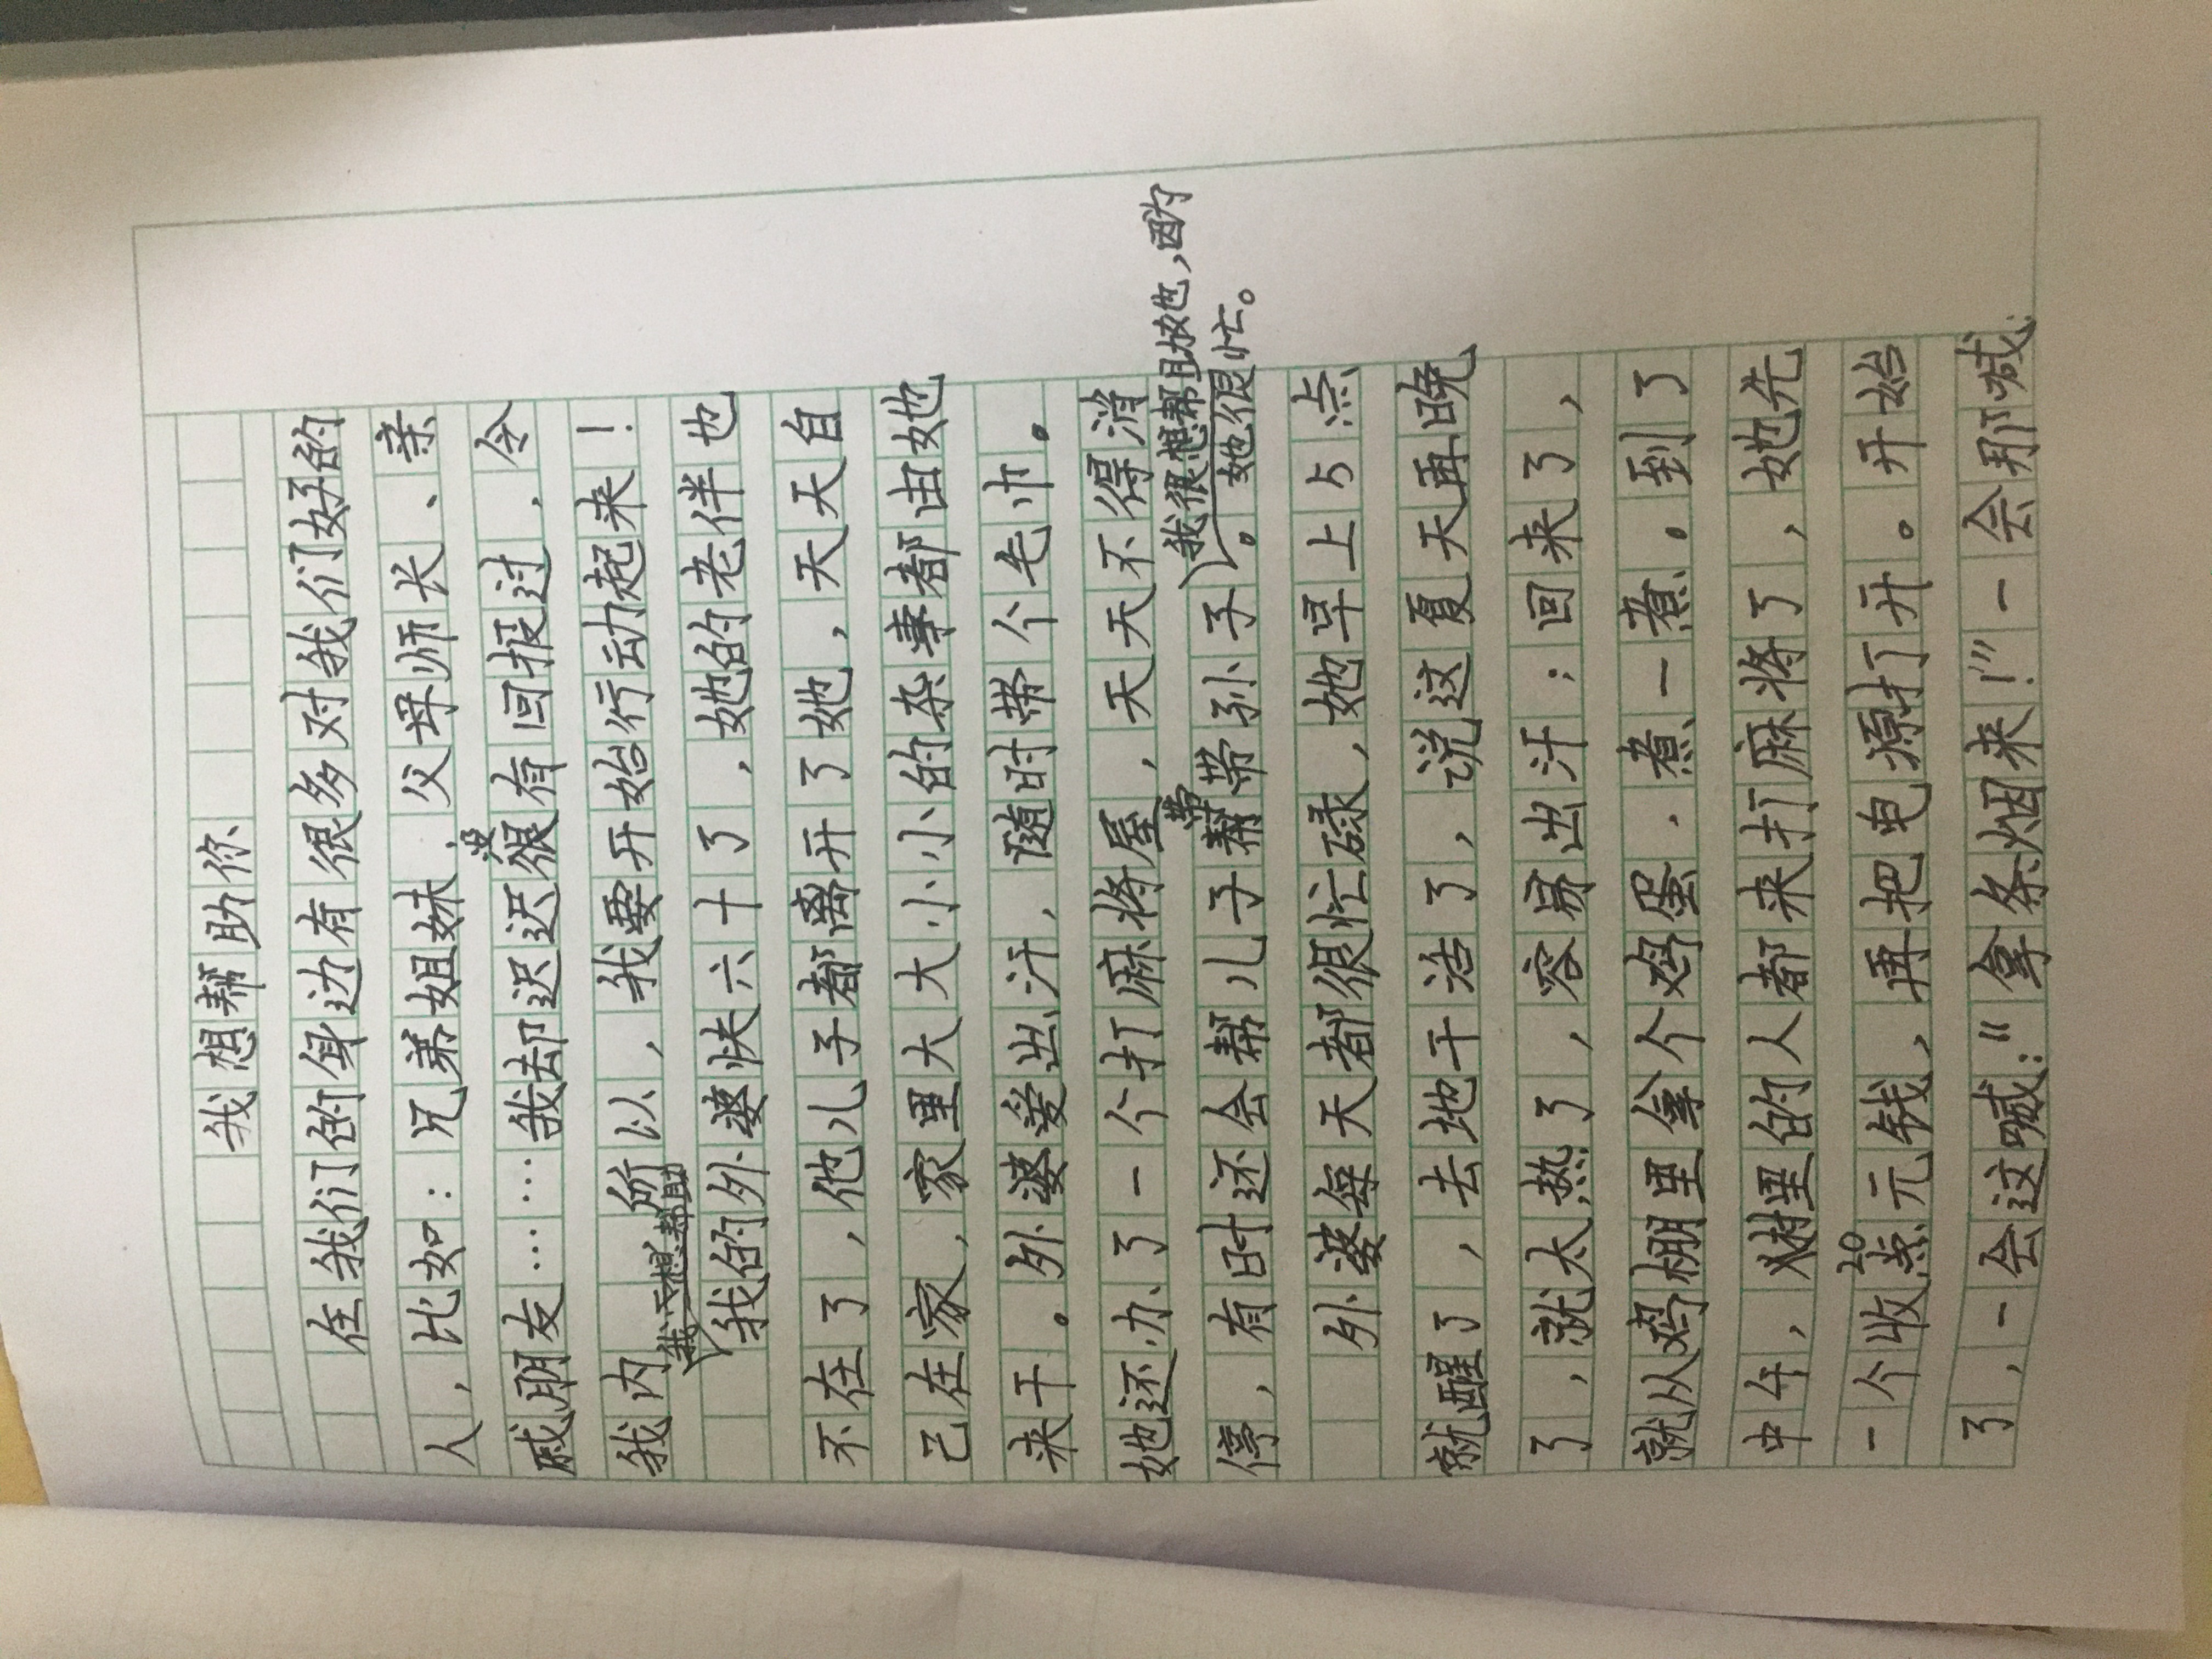 我想帮助你
在我们的身边有很多对我们好的
人,比如:兄弟姐妹,父母师长、亲
戚朋友……我却迟迟没有回报过,令
我内 所以,我要开始行动起来!
我想帮助我的外婆快六十了,她的老伴也
不在了,他儿子都离开了她,天天自
己在家,家里大大小小的杂事都由她
来干。外婆爱出汗,随时带个毛巾。
她还办了一个打麻将屋,天天不得消
停,有时还会帮儿子带带孙子。我很想帮助她,因为
她很忙。
外婆每天都很忙碌,她早上5点
就醒了,去地干活了,说这夏天再晚
了,就太热了,容易出汗;回来了,
就从鸡棚里拿个鸡蛋,煮一煮。到了
中午,村里的人都来打麻将了,她先
一个收20元钱,再把电源打开。开始
了,一会这喊:“拿条烟来!”一会那喊: